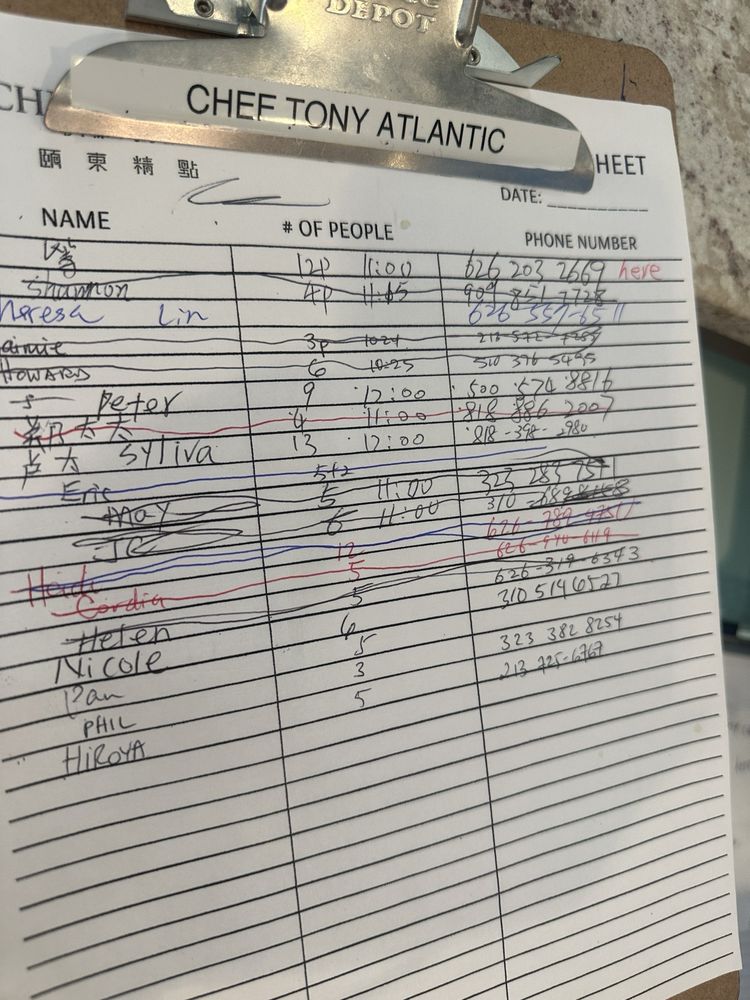 DEPOT
CHEF TONY ATLANTIC
CH HEET
頤東精點
DATE:
NAME # OF PEOPLE PHONE NUMBER
12p 11:00 626 203 2669 here
Shannon 4p 11:45 909 851 7728
heresa Lin 626-557-6511
aimie 3p 10:24 213 572
HOWARD 6 10:25 510 376 5495
Peter 9 12:00 500 574 8816
太太 4 11:00 818 886 2007
卢太 Syliva 13 12:00 818-398-2980
5+2
Eric 5 11:00 323 283 7571
May 6 11:00 310
JC 12 626-789
Heidi 5 626-940-6119
Cordia 5 626-319-6343
Helen 6 310 514 6527
Nicole 5
Pan 3 323 382 8254
PHIL 5 213 725-6767
HIROYA